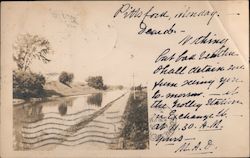 Pittsford, Monday.
Dear
Nothing
but bad weather
shall detain me
from seeing you
to-morrow - at
the Trolley Station
on Exchange St.
at 11.30 A.M.
Yours -
M.A.D.